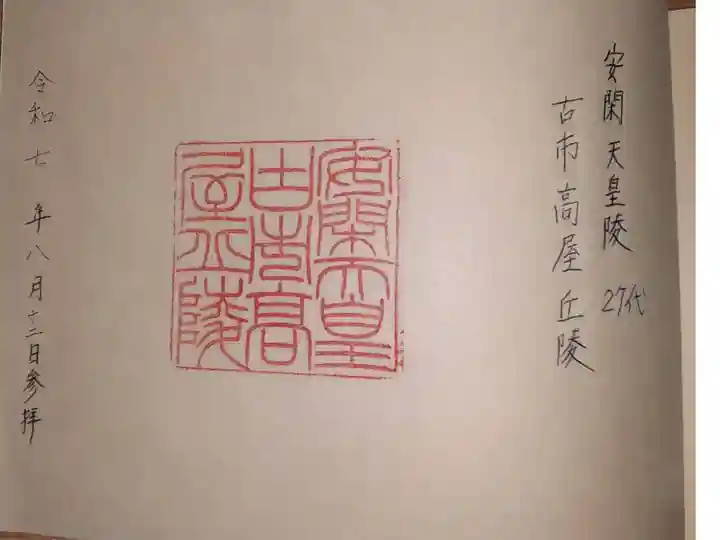 安閑天皇陵 27代
古市高屋丘陵
安閑天皇
古市高
屋丘陵
令和七年八月十二日参拝